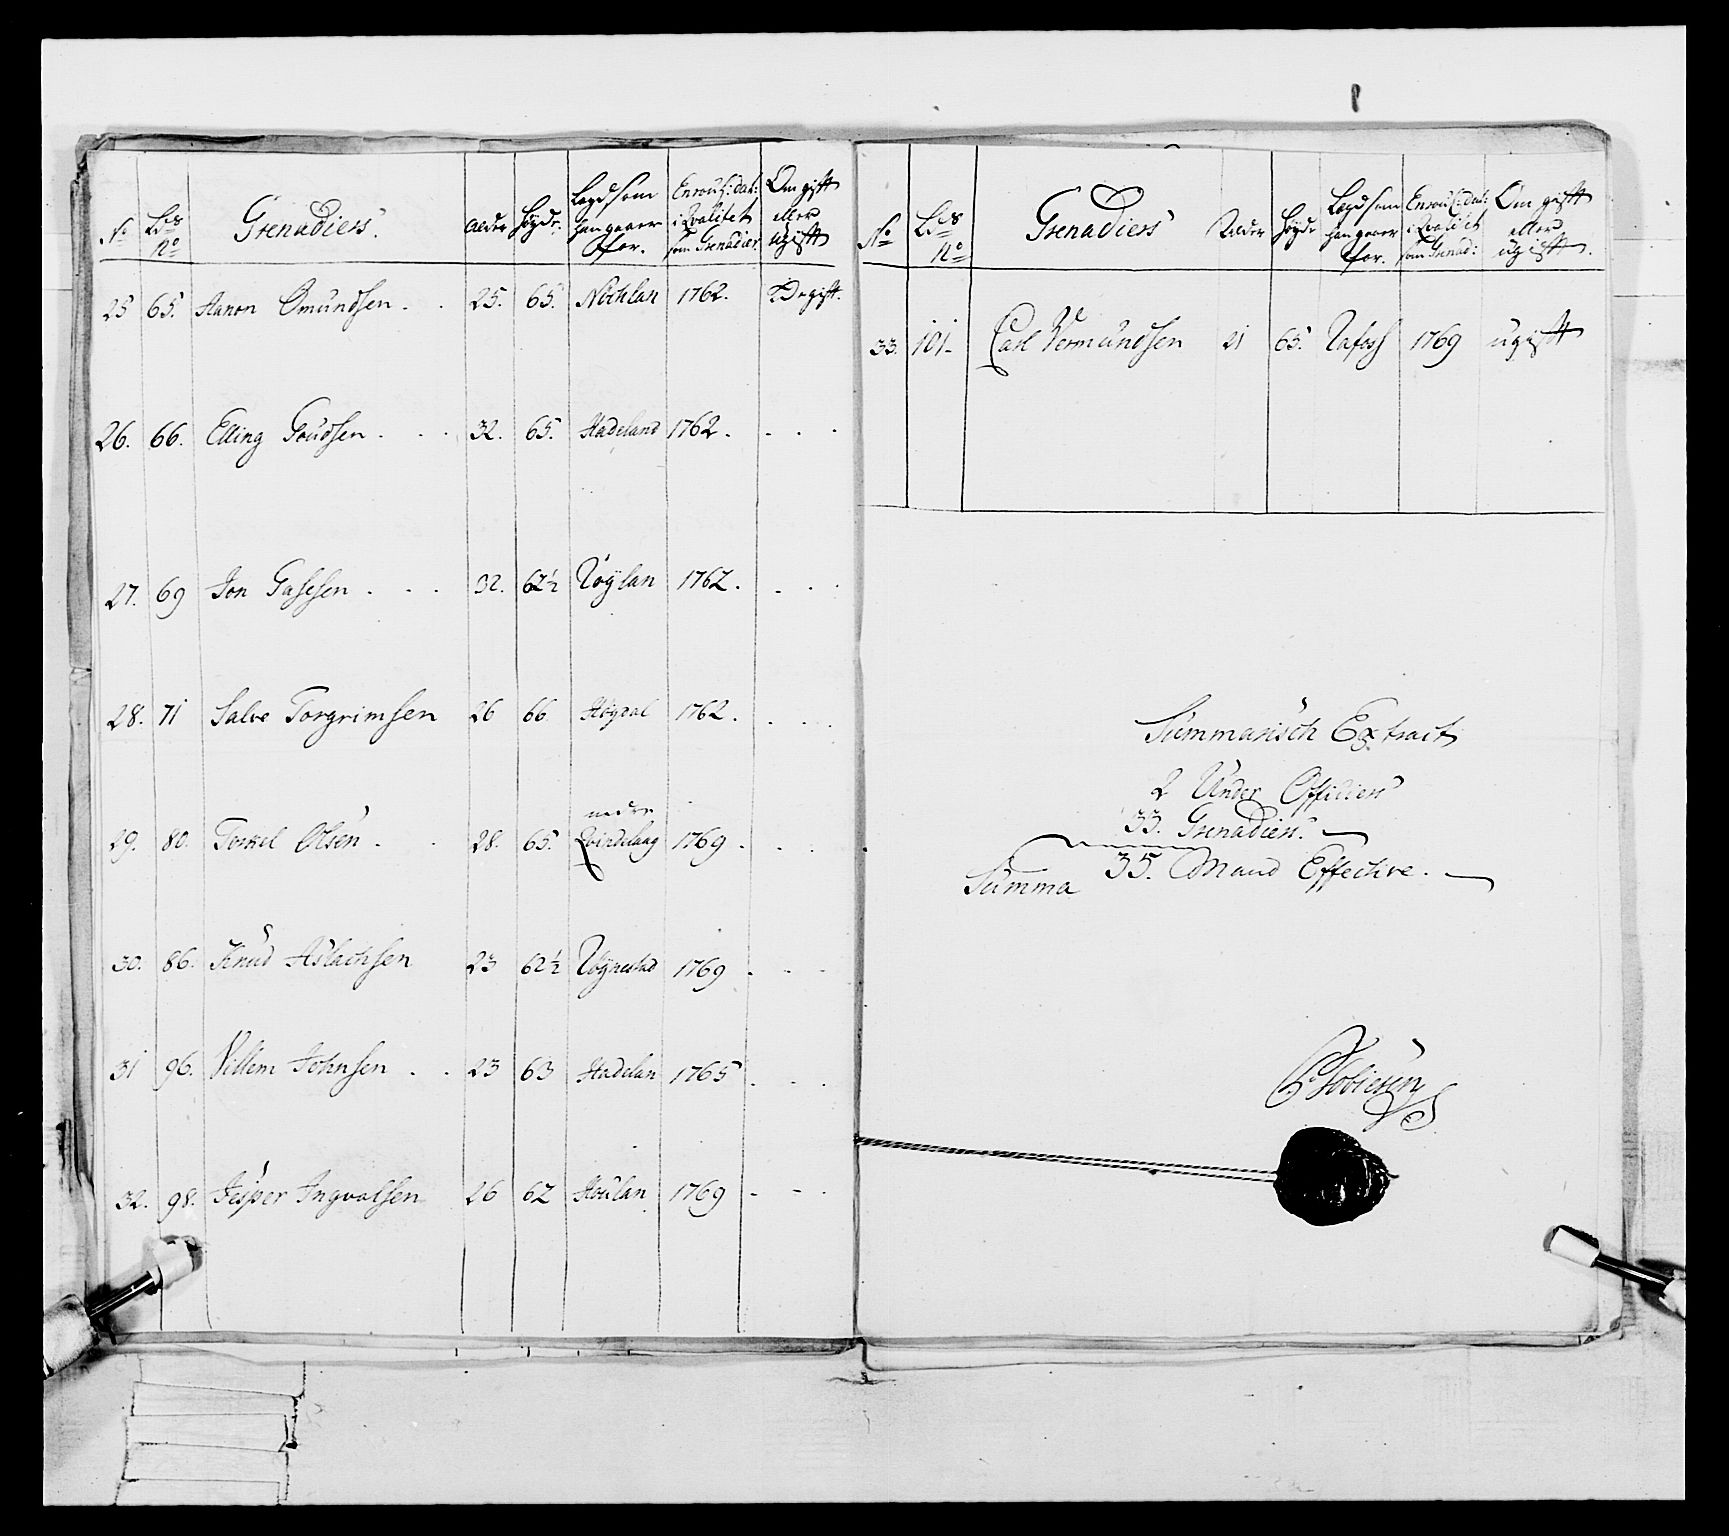 No Lds No Grenadiers. Alder Høyde. Legd som han gaaer for. Enroul: dat: i Qvalitet som Grenadier Om gift eller ugift
25 65. Aanon Omundsen . . 25. 65. 1762.
26. 66. Elling Goudsen . . . 32. 65. Hadeland 1762. . . .
27. 69 Jon Gassesen . . . 32. 62½ Røylan 1762. . . .
28. 71 Salve Torgrimsen 26 66 1762. . . .
29. 80. Torkel Olsen . . 28. 65. nedre Qvindslaag 1769. . . .
30. 86. Knud Aslachsen 23 62½ Røynestad 1769 . . .
31 96. Villem Johnsen . . 23 63 Hadelan 1765 . . .
32. 98. Jesper Ingvalsen 26 62 Houlan 1769 - - .
No Lds No Grenadiers Alder Høyde Legd som han gaaer for. Enroul: dat: i Qvalitet som Grenad: Om gift eller ugift.
33. 101. Carl Vermundsen 21 63. Rafoss 1769 ugift
Summarisch Extract
2 Under Officiers
33. Grenadiers.
Summa 35. Mand Effective.
Tobiesen